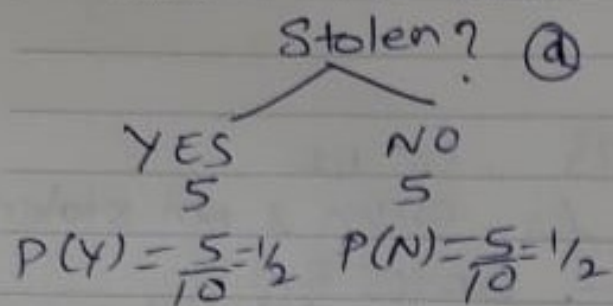 Stolen? ⓓ
YES NO
5 5
P(Y) = 5/10 = 1/2 P(N) = 5/10 = 1/2